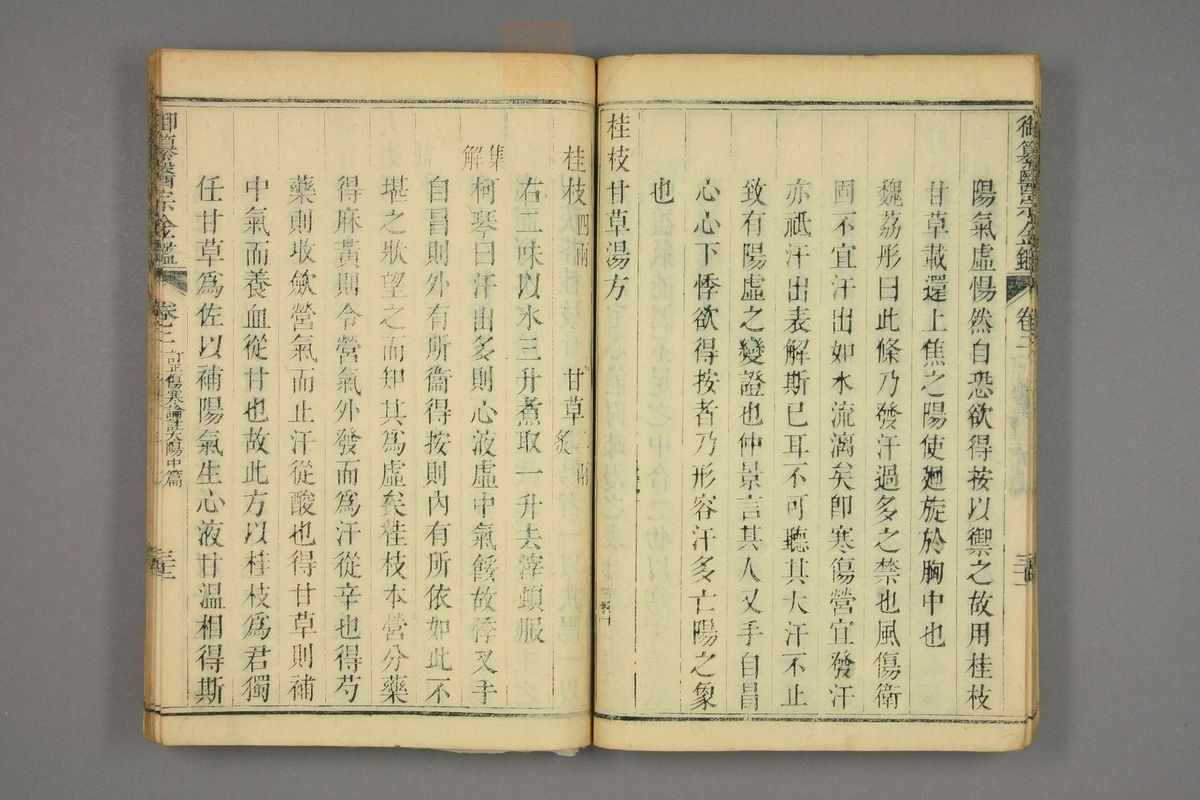 御纂醫宗金鑑
卷三
陽氣虛惕然自恐欲得按以禦之故用桂枝
甘草載還上焦之陽使廻旋於胸中也
魏荔彤曰此條乃發汗過多之禁也風傷衛
固不宜汗出如水流漓矣卽寒傷營宜發汗
亦祇汗出表解斯已耳不可聽其大汗不止
致有陽虛之變證也仲景言其人叉手自冒
心心下悸欲得按者乃形容汗多亡陽之象
也
桂枝甘草湯方
桂枝四兩 甘草炙二兩
右二味以水三升煮取一升去滓頓服
集解 柯琴曰汗出多則心液虛中氣餒故悸叉手
自冒則外有所衞得按則內有所依如此不
堪之狀望之而知其爲虛矣桂枝本營分藥
得麻黃則令營氣外發而爲汗從辛也得芍
藥則收斂營氣而止汗從酸也得甘草則補
中氣而養血從甘也故此方以桂枝爲君獨
任甘草爲佐以補陽氣生心液甘溫相得斯
御纂醫宗金鑑
卷三 訂正傷寒論註太陽中篇